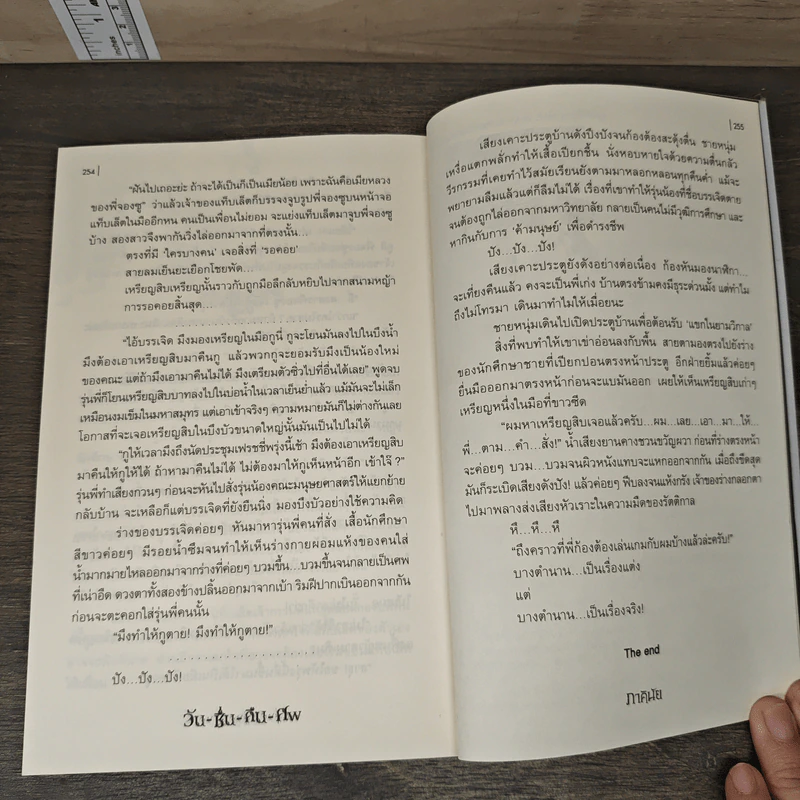 254
"ฝันไปเถอะย่ะ ถ้าจะได้เป็นก็เป็นเมียน้อย เพราะฉันคือเมียหลวง
ของพี่จองซู" ว่าแล้วเจ้าของแท็บเล็ตก็บรรจงจูบรูปพี่จองซูบนหน้าจอ
แท็บเล็ตในมืออีกหน คนเป็นเพื่อนไม่ยอม จะแย่งแท็บเล็ตมาจูบพี่จองซู
บ้าง สองสาวจึงพากันวิ่งไล่ออกมาจากที่ตรงนั้น...
ตรงที่มี 'ใครบางคน' เจอสิ่งที่ 'รอคอย'
สายลมเย็นยะเยือกโชยพัด...
เหรียญสิบเหรียญนั้นราวกับถูกมือลึกลับหยิบไปจากสนามหญ้า
การรอคอยสิ้นสุด...
"ไอ้บรรเจิด มึงมองเหรียญในมือกูนี่ กูจะโยนมันลงไปในบึงน้ำ
มึงต้องเอาเหรียญสิบมาคืนกู แล้วพวกกูจะยอมรับมึงเป็นน้องใหม่
ของคณะ แต่ถ้ามึงเอามาคืนไม่ได้ มึงเตรียมตัวซิ่วไปที่อื่นได้เลย" พูดจบ
รุ่นพี่ก็โยนเหรียญสิบบาทลงไปในบ่อน้ำในเวลาเย็นย่ำ แม้มันจะไม่เล็ก
เหมือนงมเข็มในมหาสมุทร แต่เอาเข้าจริงๆ ความหมายมันก็ไม่ต่างกันเลย
โอกาสที่จะเจอเหรียญสิบในบึงบัวขนาดใหญ่นั้นมันเป็นไปไม่ได้
"กูให้เวลามึงถึงนัดประชุมเฟรชชี่พรุ่งนี้เช้า มึงต้องเอาเหรียญสิบ
มาคืนให้กูให้ได้ ถ้าหามาคืนไม่ได้ ไม่ต้องมาให้กูเห็นหน้าอีก เข้าใจ๊ ?"
รุ่นพี่ทำเสียงกวนๆ ก่อนจะหันไปสั่งรุ่นน้องคณะมนุษยศาสตร์ให้แยกย้าย
กลับบ้าน จะเหลือก็แต่บรรเจิดที่ยังยืนนิ่ง มองบึงบัวอย่างใช้ความคิด
ร่างของบรรเจิดค่อยๆ หันมาหารุ่นพี่คนที่สั่ง เสื้อนักศึกษา
สีขาวค่อยๆ มีรอยน้ำซึมจนทำให้เห็นร่างกายผอมแห้งของคนใส่
น้ำมากมายไหลออกมาจากร่างที่ค่อยๆ บวมขึ้น...บวมขึ้นจนกลายเป็นศพ
ที่เน่าอืด ดวงตาทั้งสองข้างปลิ้นออกมาจากเบ้า ริมฝีปากเบินออกจากกัน
ก่อนจะตะคอกใส่รุ่นพี่คนนั้น
"มึงทำให้กูตาย! มึงทำให้กูตาย!"
ปัง...ปัง...ปัง!
วัน-ชื่น-คืน-ศพ
255
เสียงเคาะประตูบ้านดังปึงปังจนก้องต้องสะดุ้งตื่น ชายหนุ่ม
เหงื่อแตกพลั่กทำให้เสื้อเปียกชื้น นั่งหอบหายใจด้วยความตื่นกลัว
วีรกรรมที่เคยทำไว้สมัยเรียนยังตามมาหลอกหลอนทุกคืนค่ำ แม้จะ
พยายามลืมแล้วแต่ก็ลืมไม่ได้ เรื่องที่เขาทำให้รุ่นน้องที่ชื่อบรรเจิดตาย
จนต้องถูกไล่ออกจากมหาวิทยาลัย กลายเป็นคนไม่มีวุฒิการศึกษา และ
หากินกับการ 'ค้ามนุษย์' เพื่อดำรงชีพ
ปัง...ปัง...ปัง!
เสียงเคาะประตูยังดังอย่างต่อเนื่อง ก้องหันมองนาฬิกา...
จะเที่ยงคืนแล้ว คงจะเป็นพี่เก่ง บ้านตรงข้ามคงมีธุระด่วนมั้ง แต่ทำไม
ถึงไม่โทรมา เดินมาทำไมให้เมื่อยนะ
ชายหนุ่มเดินไปเปิดประตูบ้านเพื่อต้อนรับ 'แขกในยามวิกาล'
สิ่งที่พบทำให้เขาเข่าอ่อนลงกับพื้น สายตามองตรงไปยังร่าง
ของนักศึกษาชายที่เปียกปอนตรงหน้าประตู อีกฝ่ายยิ้มแล้วค่อยๆ
ยื่นมือออกมาตรงหน้าก่อนจะแบมันออก เผยให้เห็นเหรียญสิบเก่าๆ
เหรียญหนึ่งในมือที่ขาวซีด
"ผมหาเหรียญสิบเจอแล้วครับ...ผม...เลย...เอา...มา...ให้...
พี่...ตาม...คำ...สั่ง!" น้ำเสียงยานคางชวนขวัญผวา ก่อนที่ร่างตรงหน้า
จะค่อยๆ บวม...บวมจนผิวหนังแทบจะแหกออกจากกัน เมื่อถึงขีดสุด
มันก็ระเบิดเสียงดังปัง! แล้วค่อยๆ ฟีบลงจนแห้งกรัง เจ้าของร่างกลอกตา
ไปมาพลางส่งเสียงหัวเราะในความมืดของรัตติกาล
หึ...หึ...หึ
"ถึงคราวที่พี่ก้องต้องเล่นเกมกับผมบ้างแล้วล่ะครับ!"
บางตำนาน...เป็นเรื่องแต่ง
แต่
บางตำนาน...เป็นเรื่องจริง!
The end
ภาคินัย
inches
1
2